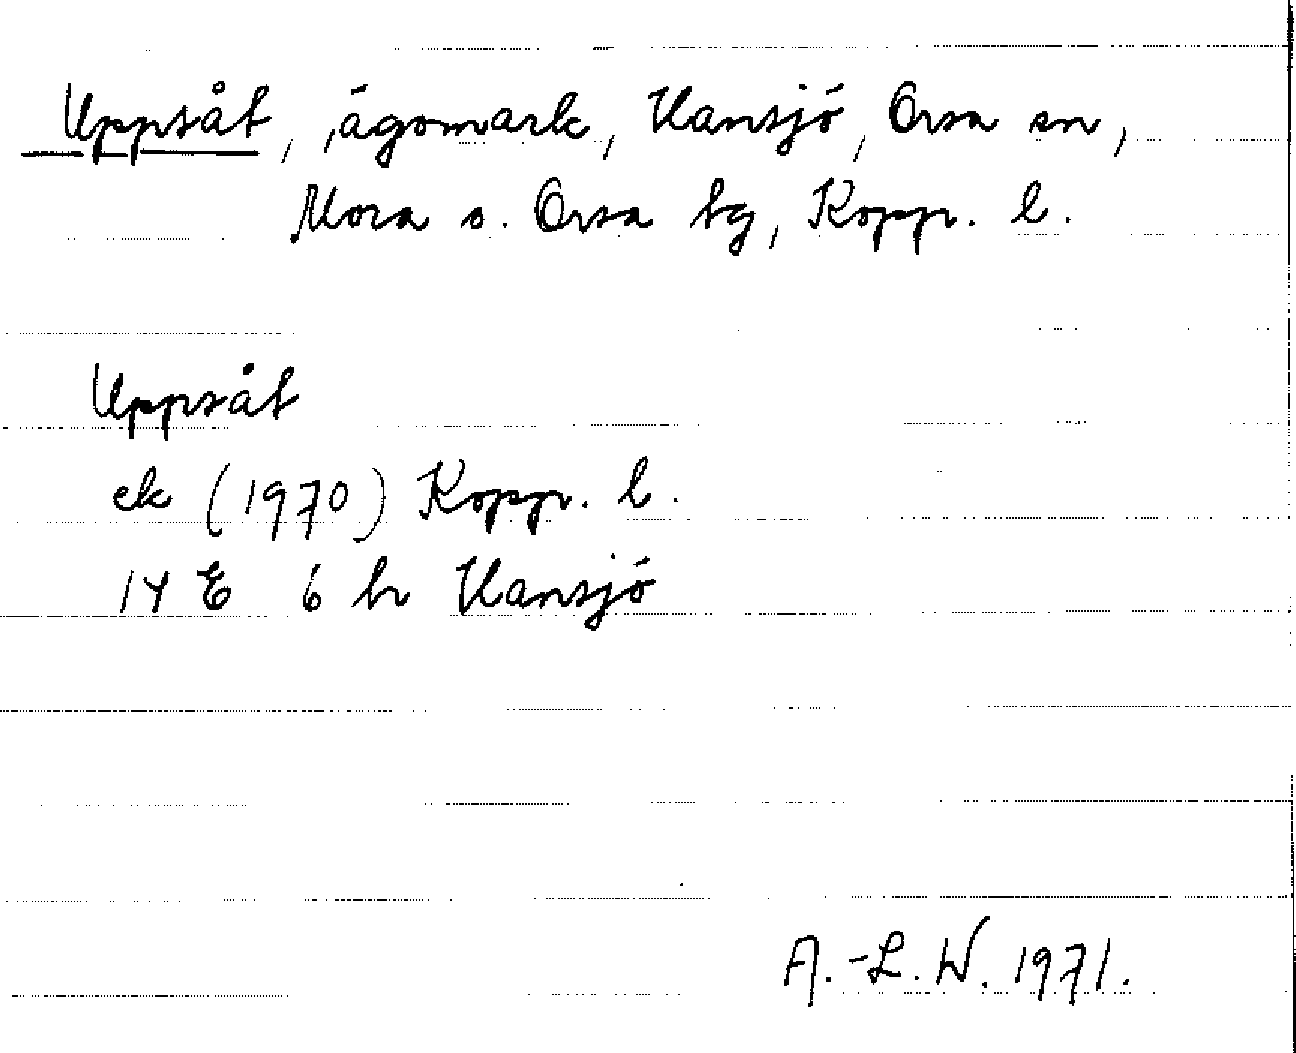 Uppsåt, ägomark, Hansjö, Orsa sn,
Mora o. Orsa tg, Kopp. l.
Uppsåt
ek (1970) Kopp. l.
14 E 6 h Hansjö
A.-L. W. 1971.